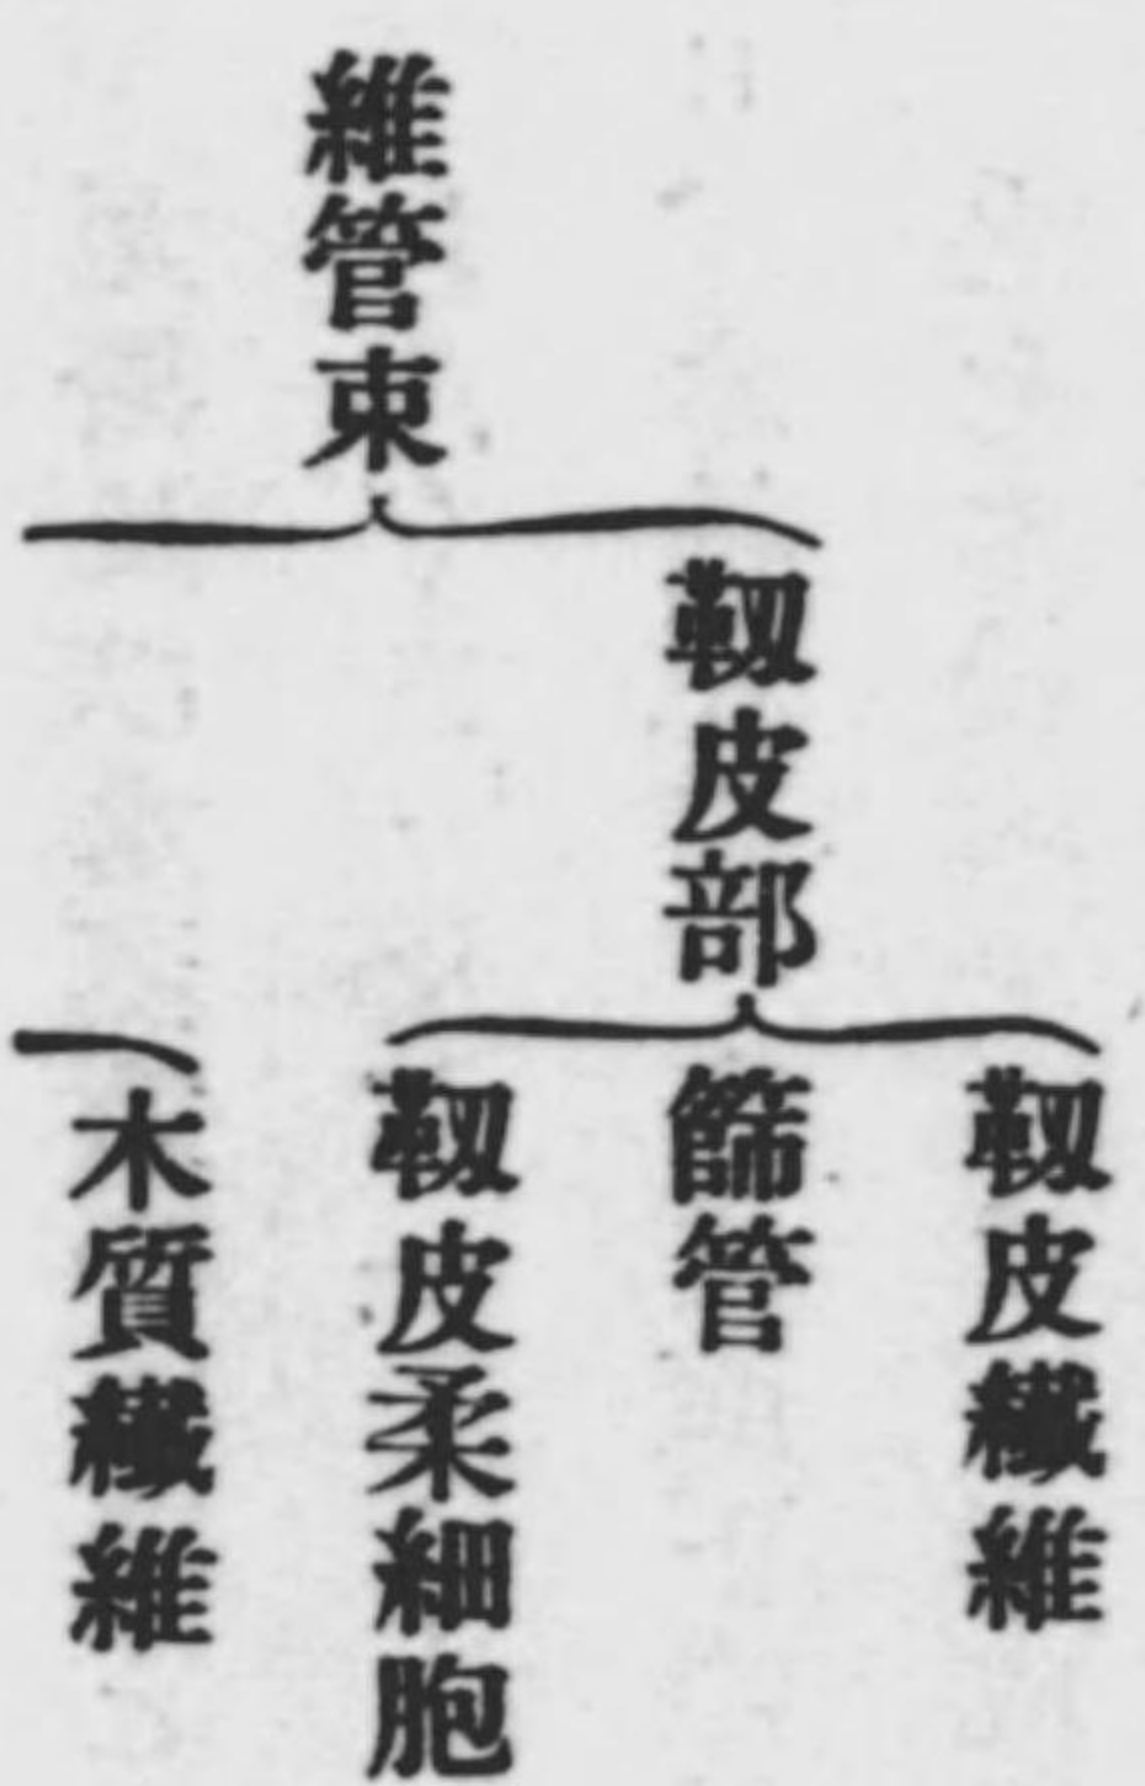 維管束
靱皮部
靱皮纖維
篩管
靱皮柔細胞
木質纖維